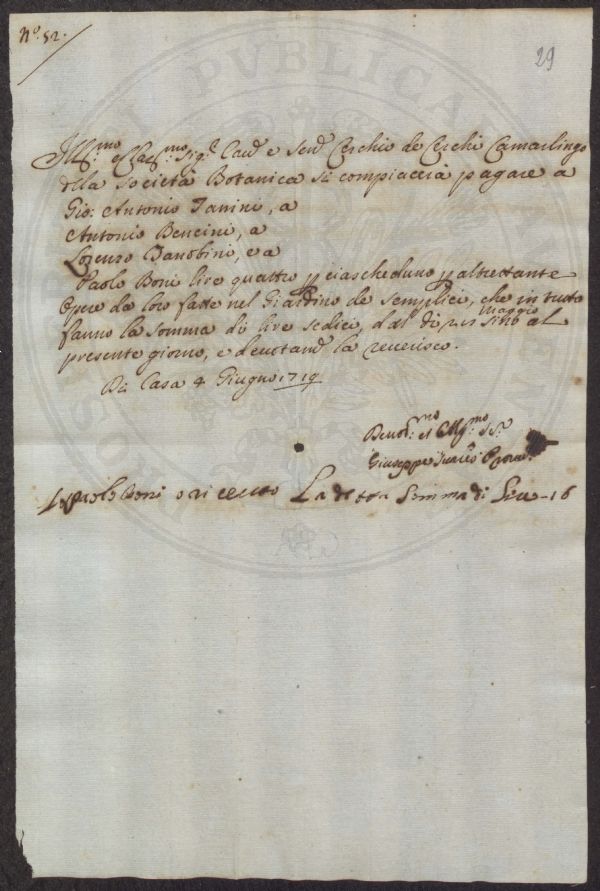 N.º 52.
29
Ill.mo e Clar.mo Sig.r Cav.r e Sen.r Cerchio de Cerchi Camarlingo
della Società Botanica si compiacerà pagare a
Gio: Antonio Janini, a
Antonio Bencini, a
Lorenzo Janobini, e a
Paolo Boni lire quattro p ciascheduno p altrettante
Opere da loro fatte nel Giardino de semplici, che in tutto
fanno la somma di lire sedici, dal dì maggio sino al
presente giorno, e devotam.te la reverisco.
Di Casa 4 Giugno 1719
Devot.mo et Obblig.mo Ser.e
Giuseppe
Paolo Boni o ricevuto La detta Somma di Lire 16